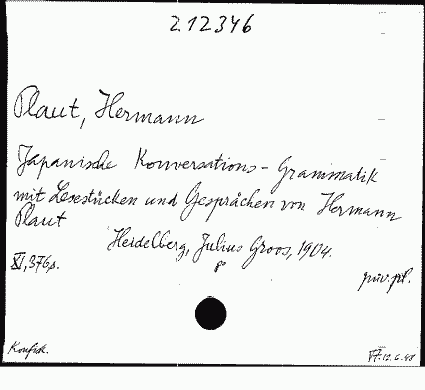 212346
Plaut, Hermann
Japanische Konversations-Grammatik
mit Lesestücken und Gesprächen von Hermann
Plaut
Heidelberg, Julius Groos, 1904.
8°
XI, 376 s.
priv. pl.
Konfisk.
12.6.48